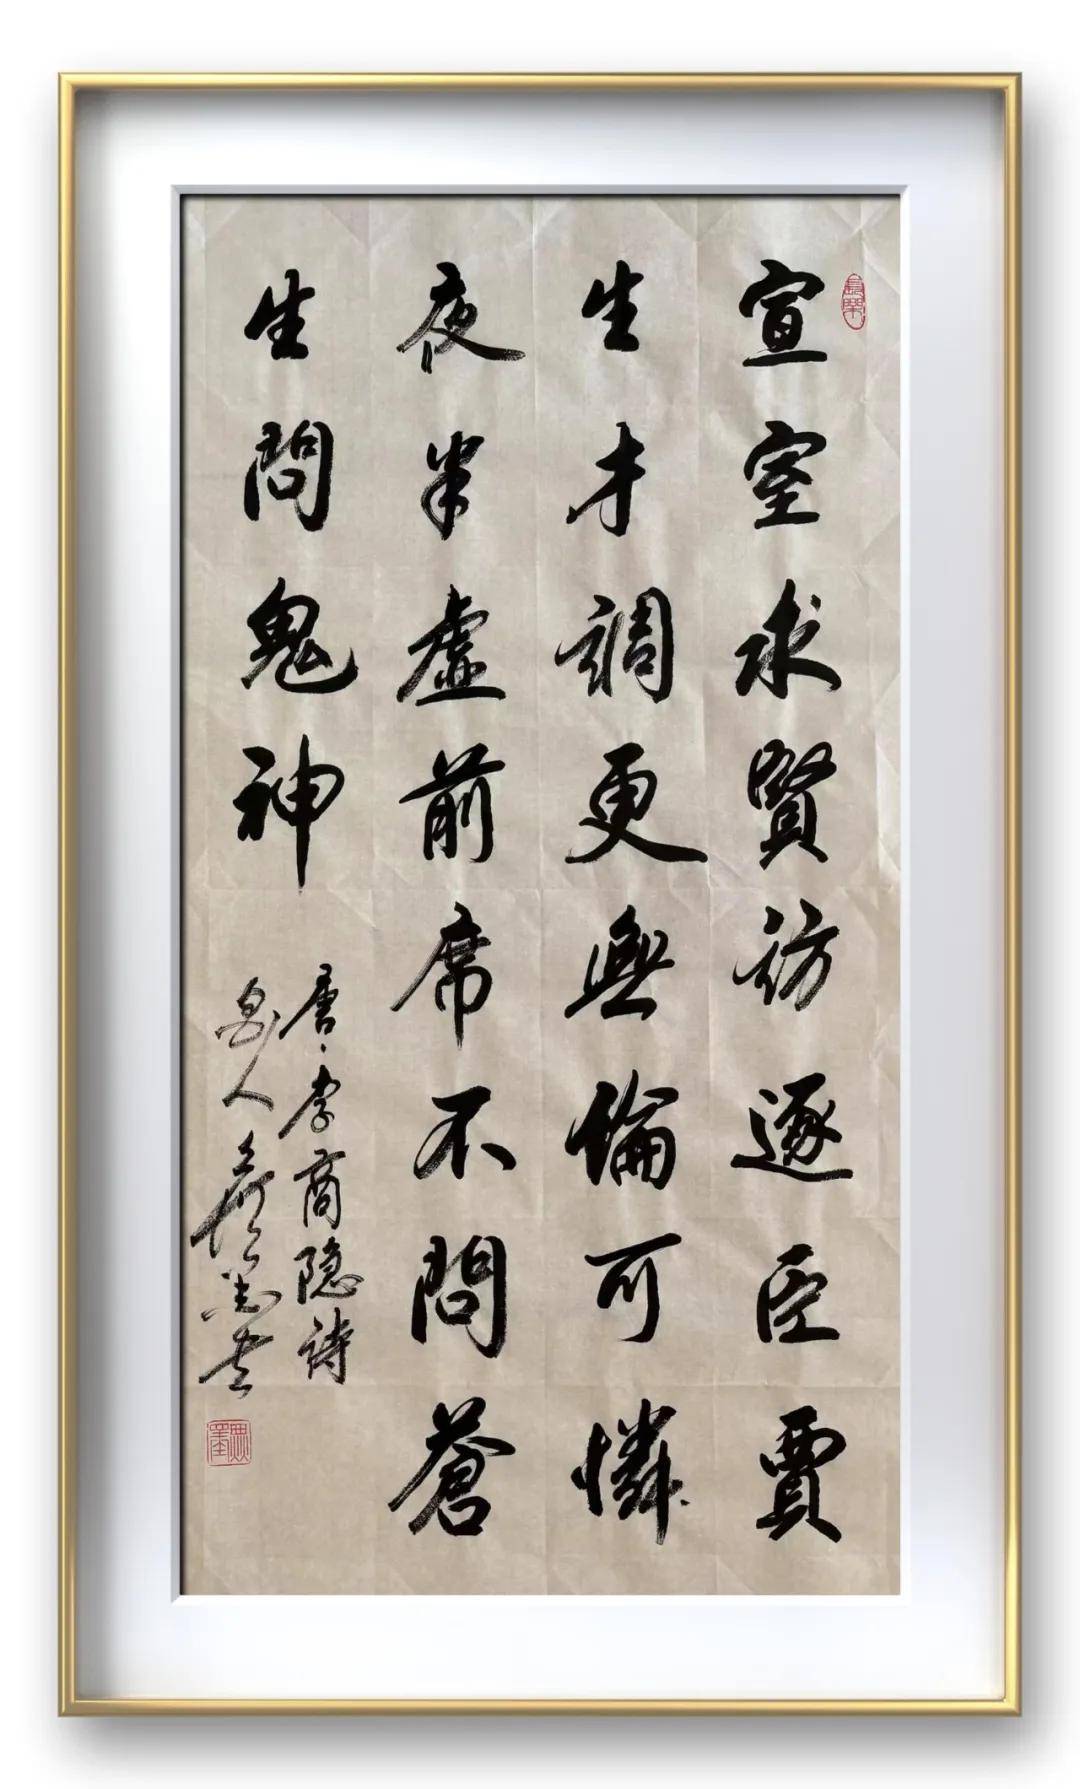 宣室求賢訪逐臣賈
生才調更無倫可憐
夜半虛前席不問蒼
生問鬼神
唐·李商隐詩